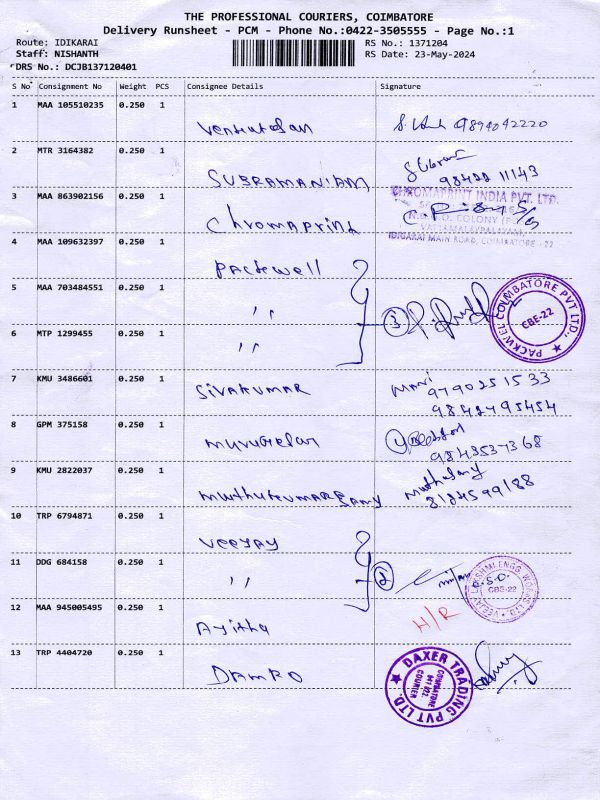 THE PROFESSIONAL COURIERS, COIMBATORE
Delivery Runsheet - PCM - Phone No.:0422-3505555 - Page No.:1
Route: IDIKARAI RS No.: 1371204
Staff: NISHANTH RS Date: 23-May-2024
DRS No.: DCJB137120401
S No Consignment No Weight PCS Consignee Details Signature
1 MAA 105510235 0.250 1 Venkatesan 9894042220
2 MTR 3164382 0.250 1 SUBRAMANIAM 98422 11143
3 MAA 863902156 0.250 1 Chromaprint
CHROMAPRINT INDIA PVT. LTD.
COLONY
VATTAMALAIPALAYAM
IDIGARAI MAIN ROAD, COIMBATORE - 22
4 MAA 109632397 0.250 1 Packwell
5 MAA 703484551 0.250 1 〃 3
PACKWEL COIMBATORE PVT LTD., CBE-22
6 MTP 1299455 0.250 1 〃
7 KMU 3486601 0.250 1 SIVAKUMAR Mani
9790251533
9842795454
8 GPM 375158 0.250 1 Murugesan
9843537368
9 KMU 2822037 0.250 1 Muthukumarasamy Muthusamy
8124599188
10 TRP 6794871 0.250 1 VEEJAY
11 DDG 684158 0.250 1 〃 2
VEEJAY LAKSHMI ENGG. WORKS LTD. CBE-22
12 MAA 945005495 0.250 1 Ayitha H/R
13 TRP 4404720 0.250 1 DAMRO
DAXER TRADING PVT LTD.
COIMBATORE
641 022.
COURIER